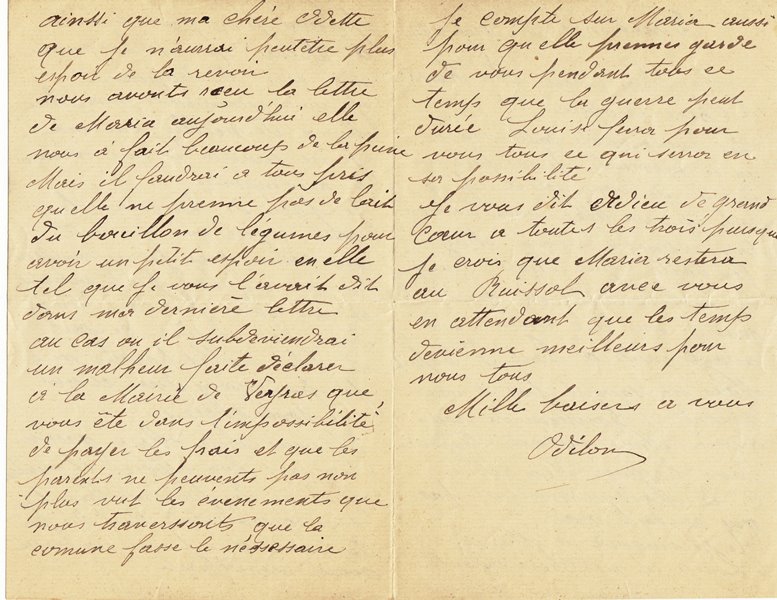 ainssi que ma chère Odette
que je n'aurrai peutêtre plus
espoir de la revoir
nous avonts reçu la lettre
de Maria aujourd'hui elle
nous à fait beaucoup de la peine
Mais il faudrai a tous près
quelle ne prenne pas de lait
du bouillon de légumes pour
avoir un petit espoir en elle
tel que je vous l'avait dit
dans ma dernière lettre
au cas ou il subdeviendrai
un malheur faite déclarer
à la Mairie de que
vous ête dans l'impossibilité
de payer les frais et que les
parents ne peuvents pas non
plus vut les évenements que
nous traverssonts que la
comune fasse le nécessaire
Je compte sur Maria aussi
pour quelle prennes garde
de vous pendant tous ce
temps que la guerre peut
durée Louise fera pour
vous tous ce qui serra en
sa possibilité
Je vous dit Adieu de grand
Cœur a toutes les trois puisque
je crois que Maria restera
au Ruissol avec vous
en attendant que les temps
devienne meilleurs pour
nous tous
Mille baisers a vous
Odilon